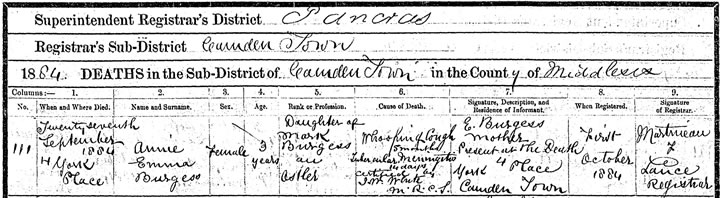 Superintendent Registrar's District Pancras
Registrar's Sub-District Camden Town
1884. DEATHS in the Sub-District of Camden Town in the County of Middlesex
Columns:— 1. 2. 3. 4. 5. 6. 7. 8. 9.
No. When and Where Died. Name and Surname. Sex. Age. Rank or Profession. Cause of Death. Signature, Description, and Residence of Informant. When Registered. Signature of Registrar.
111
Twenty seventh
September
1884
4 York
Place
Annie
Emma
Burgess
Female
3
years
Daughter of
Mark
Burgess
an
Ostler
Whooping Cough
Tubercular Meningitis
days
certified
White
M.R.C.S.
E. Burgess
Mother
Present at the Death
4
York Place
Camden Town
First
October
1884
Martineau
Lance
Registrar